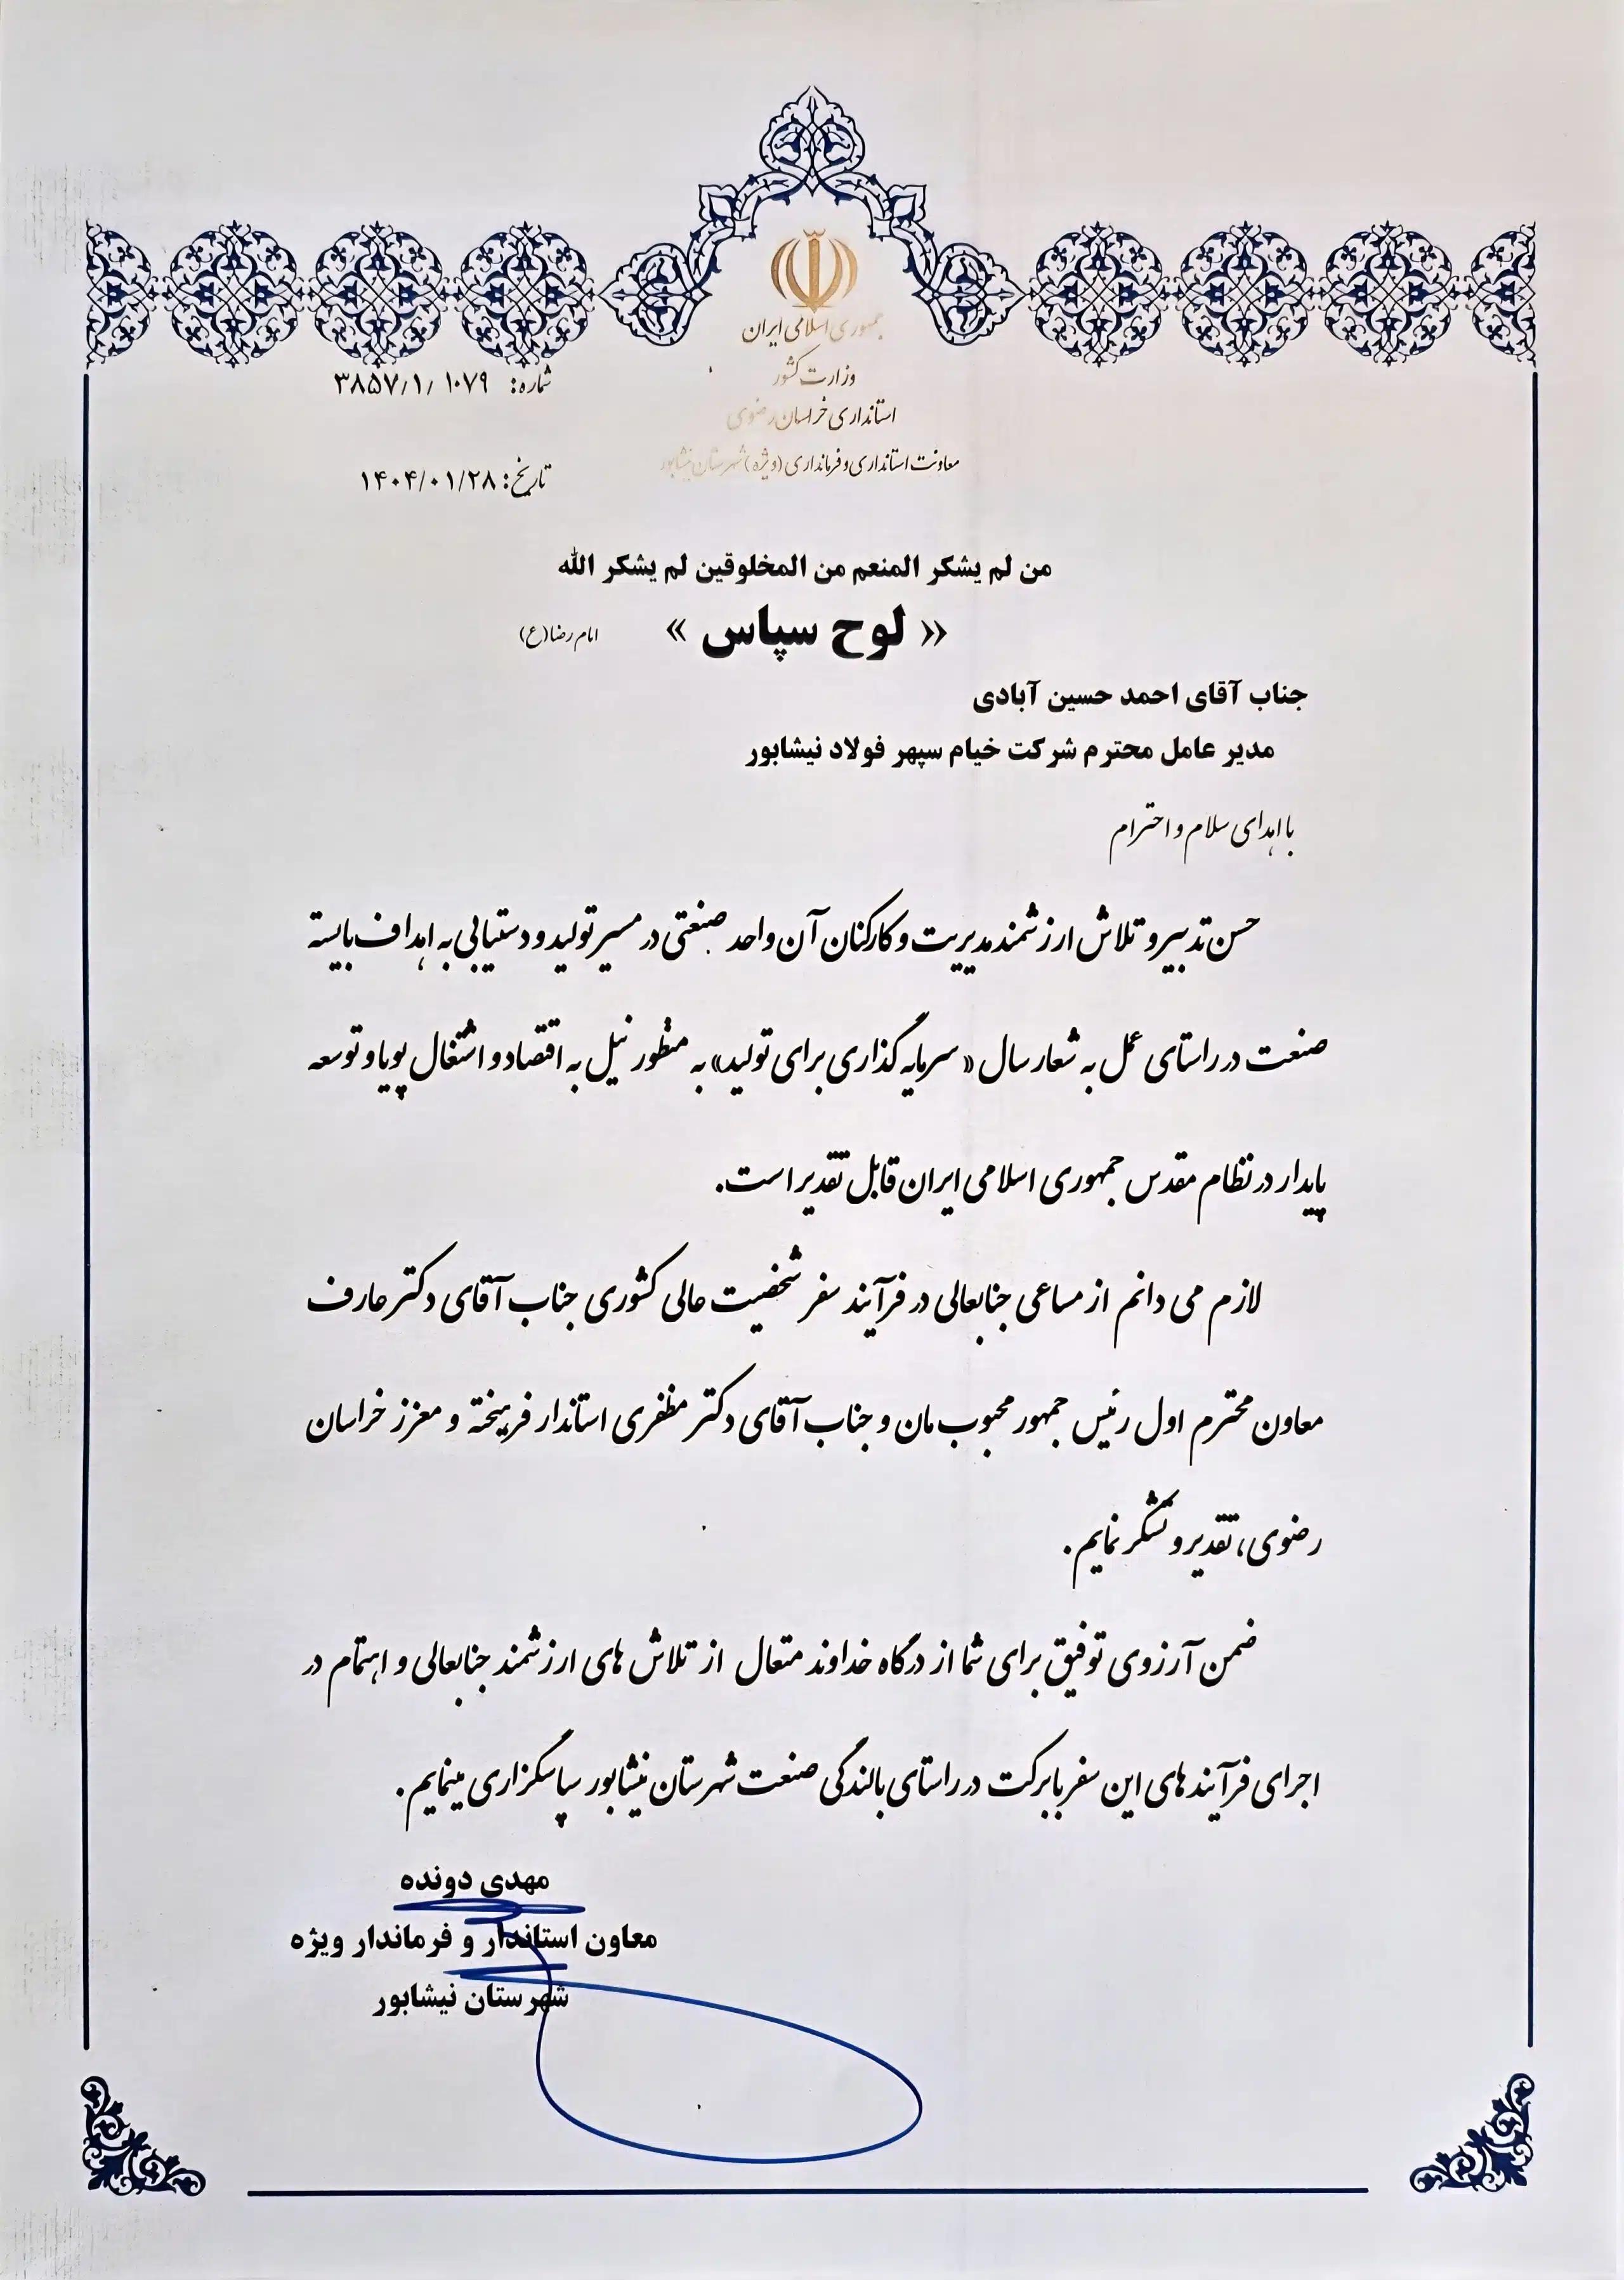 جمهوری اسلامی ایران
وزارت کشور
استانداری خراسان رضوی
معاونت استانداری و فرمانداری (ویژه) شهرستان نیشابور
شماره: ۳۸۵۷/۱/۱۰۷۹
تاریخ: ۱۴۰۴/۰۱/۲۸
من لم یشکر المنعم من المخلوقین لم یشکر الله
« لوح سپاس » امام رضا (ع)
جناب آقای احمد حسین آبادی
مدیر عامل محترم شرکت خیام سپهر فولاد نیشابور
با اهدای سلام و احترام
حسن تدبیر و تلاش ارزشمند مدیریت و کارکنان آن واحد صنعتی در مسیر تولید و دستیابی به اهداف بایسته
صنعت در راستای عمل به شعار سال « سرمایه گذاری برای تولید» به منظور نیل به اقتصاد و اشتغال پویا و توسعه
پایدار در نظام مقدس جمهوری اسلامی ایران قابل تقدیر است.
لازم می دانم از مساعی جنابعالی در فرآیند سفر شخصیت عالی کشوری جناب آقای دکتر عارف
معاون محترم اول رئیس جمهور محبوب مان و جناب آقای دکتر مظفری استاندار فریبخته و معزز خراسان
رضوی، تقدیر و تشکر نمایم.
ضمن آرزوی توفیق برای شما از درگاه خداوند متعال از تلاش های ارزشمند جنابعالی و اهتمام در
اجرای فرآیندهای این سفر بابرکت در راستای بالندگی صنعت شهرستان نیشابور سپاسگزاری مینمایم.
مهدی دونده
معاون استاندار و فرماندار ویژه
شهرستان نیشابور